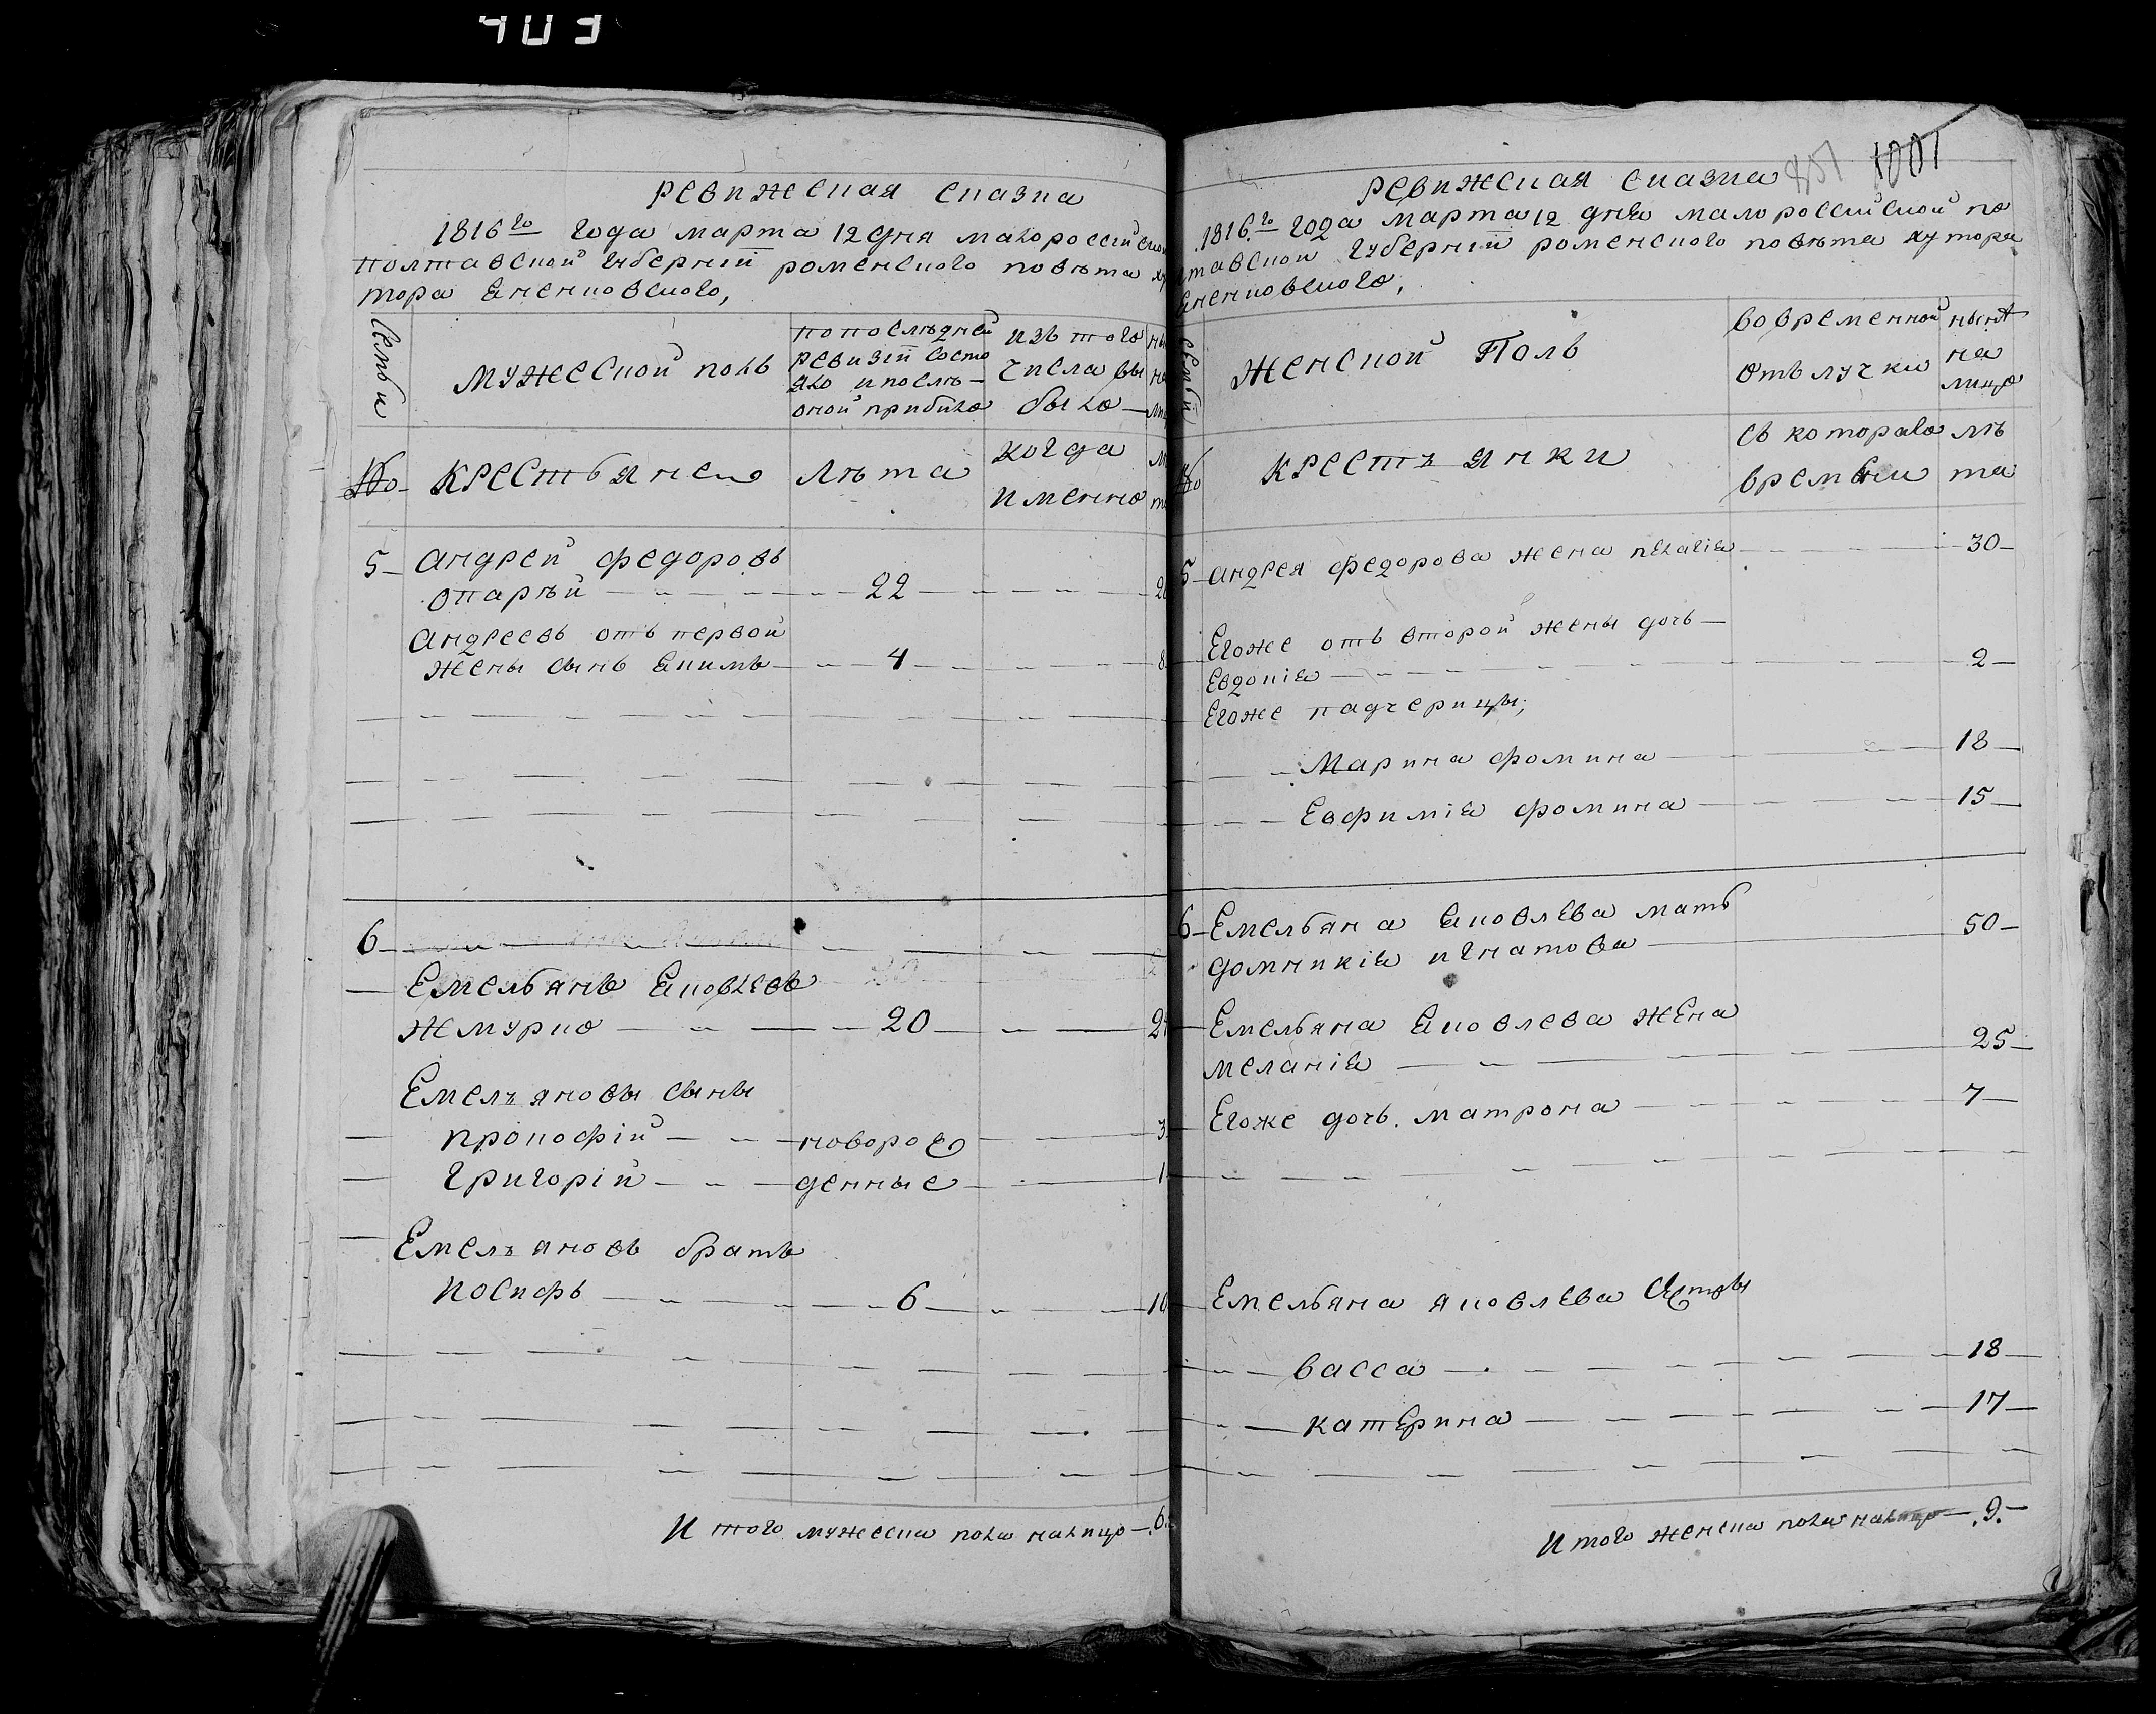 403
ревижская сказка
1816го года марта 12 дня малороссийской
полтавской губернии роменского повѣта ху
тора Ененковского,
Семьи
мужеской полъ
по последней
ревизіи состо
яло и послѣ
оной прибыло
изъ того
числа вы
было
№
крестьянеио
лѣта
когда
именно
5 Андрей федоровъ
опарѣй 22
Андреевъ отъ первой
жены сынъ Екимъ 4 8
6
Емельянъ Яковлевъ
жмурко 20
Емельяновы сыны
прокофій новорож
григорій денные 1
Емельяновъ братъ
иосифъ 6 10
Итого мужеска пола налицо 6
ревижская сказка 851 1001
1816го года марта 12 дня малороссийской по
лтавской губерніи роменского повѣта хутора
Ененковского,
Семьи
женской Полъ
во временной
отълучки
нынѣ
на
лицо
№
крестъянки
съ которало
времени
лѣ
та
5 Андрея федорова жена пелагія 30
Егоже отъ второй жены дочь
Евдокія 2
Егоже падчерицы;
Марина фомина 18
Евфимія фомина 15
6 Емельяна Яковлева мать
домникія игнатова 50
Емельяна Яковлева жена
меланія 25
Егоже дочь матрона 7
Емельяна яковлева сестры
васса 18
катерина 17
Итого женска пола налицо 9.